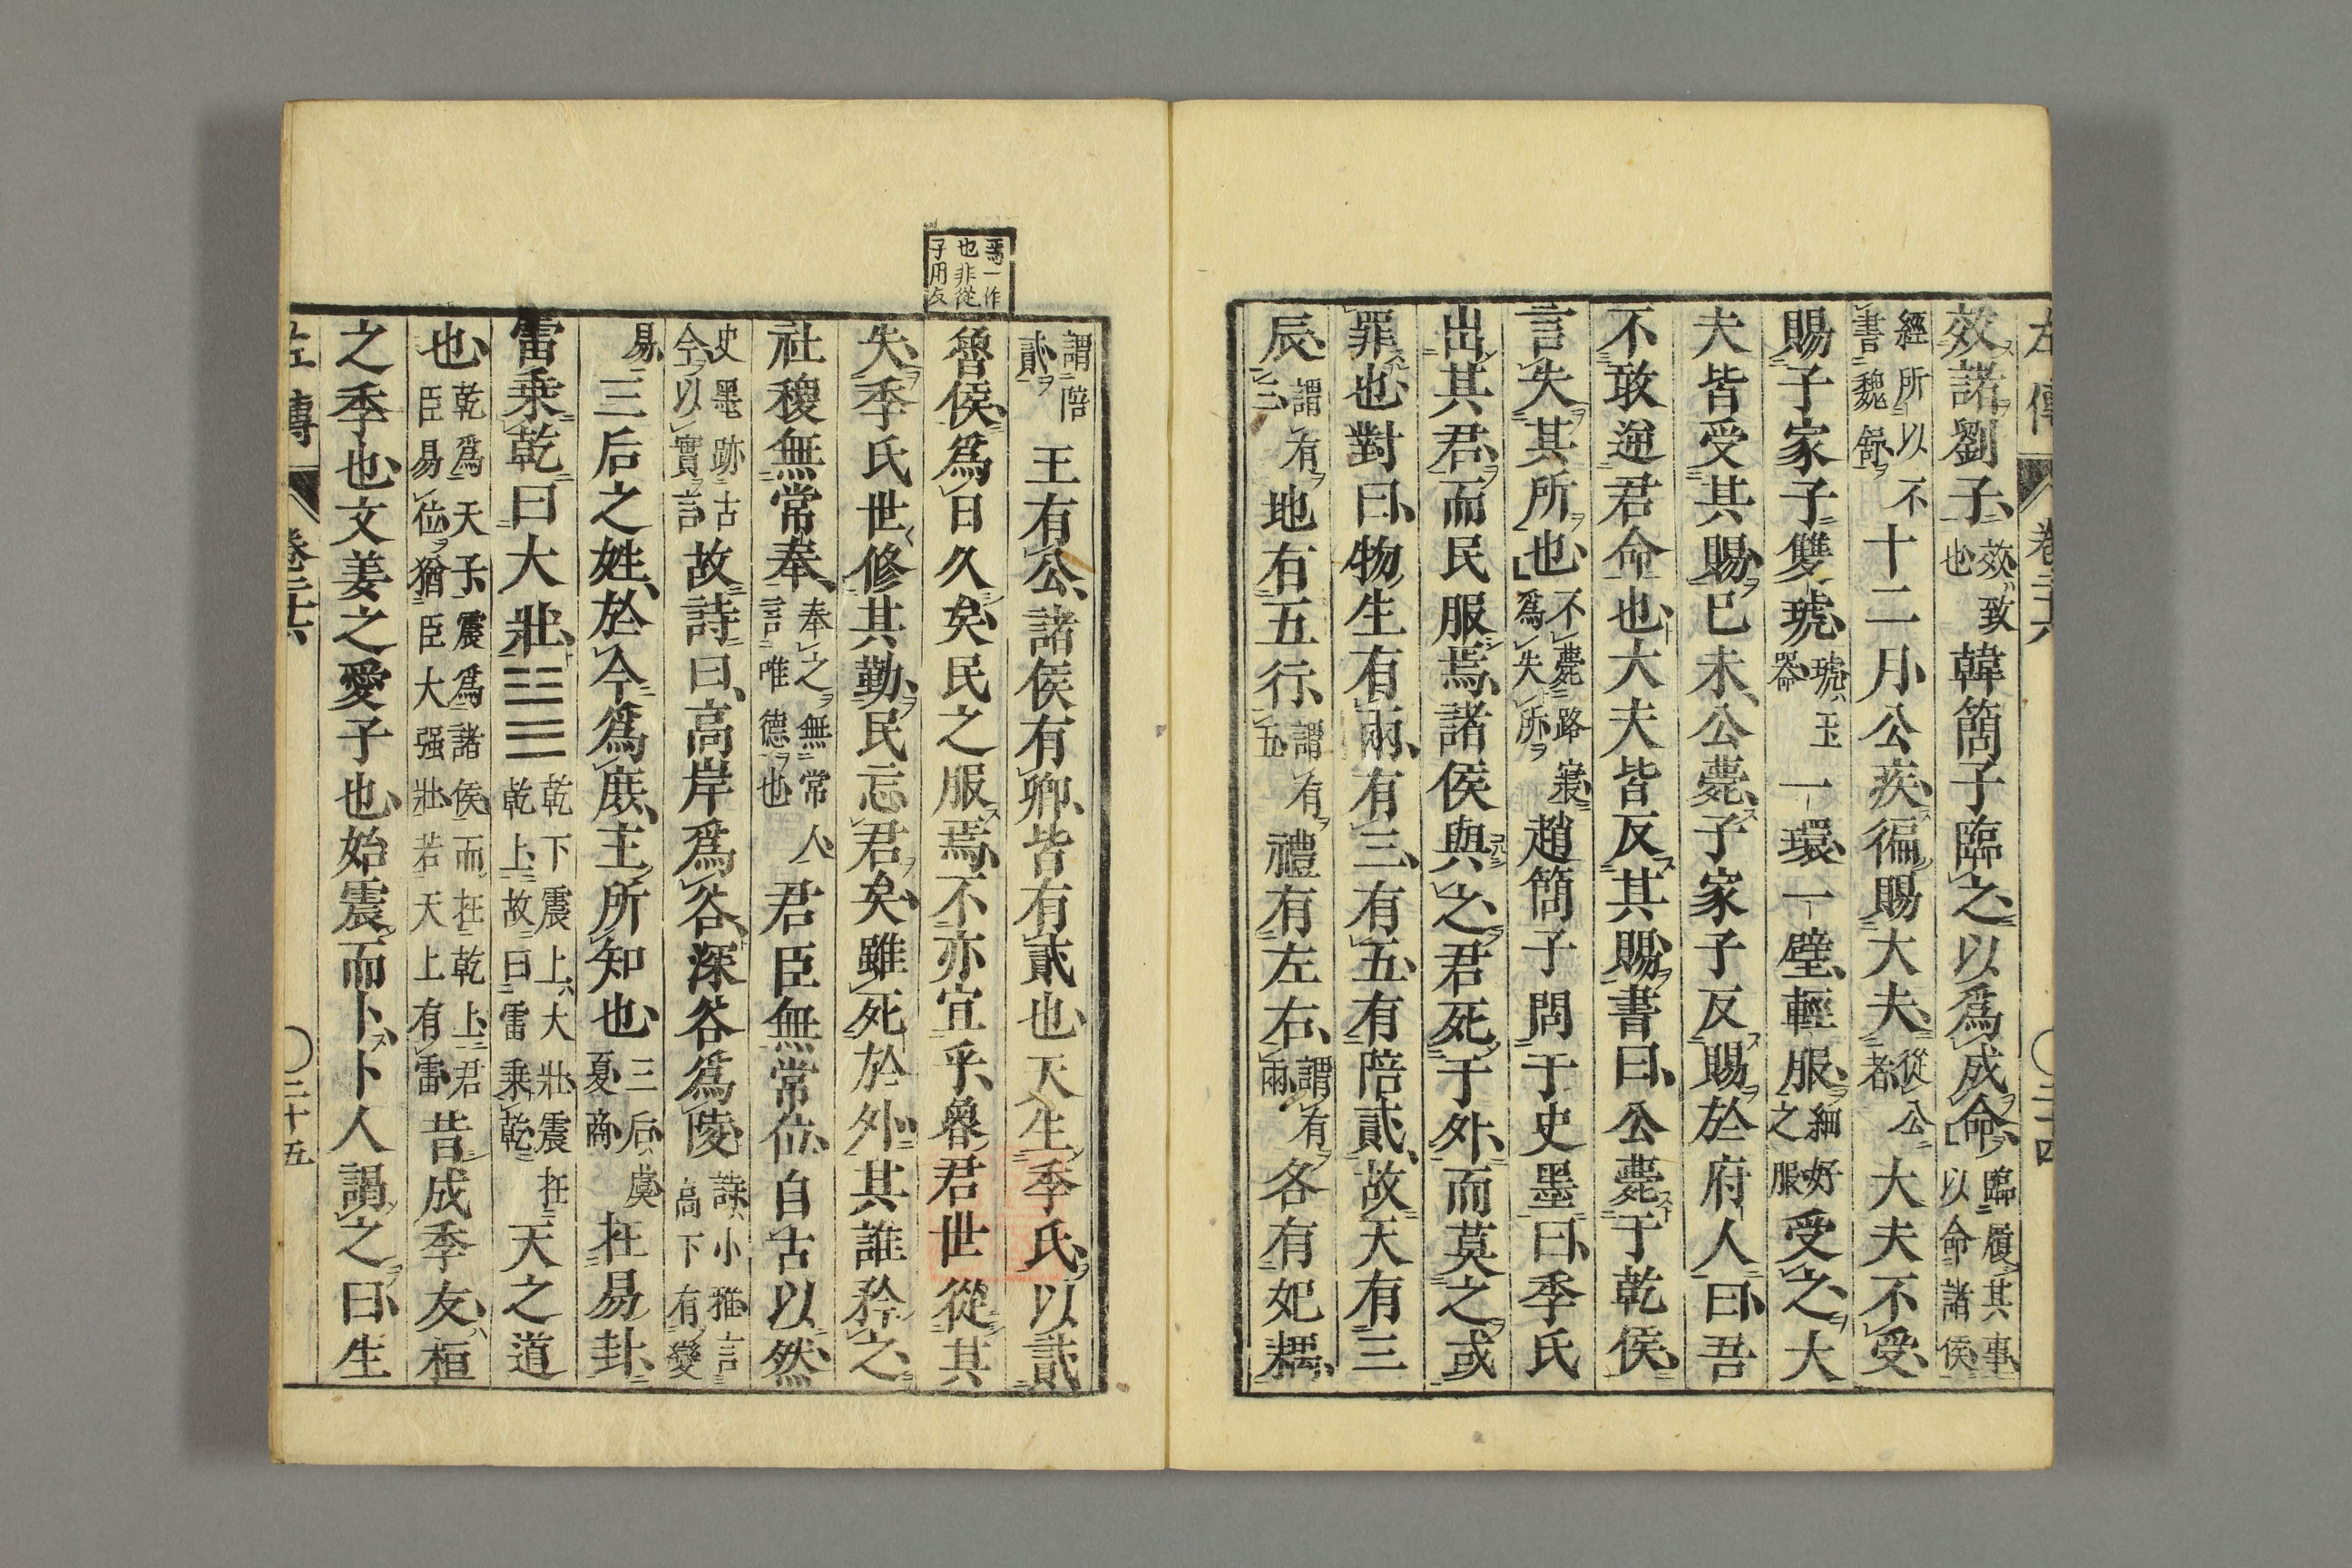 左傳 卷二十六 〇三十四
效諸劉子效致也韓簡子臨之以爲成命臨履其事以命諸侯
經所以不書魏舒十二月公疾徧賜大夫從公者大夫不受
賜子家子雙琥琥玉器一環一璧輕服細好之服受之大
夫皆受其賜已未公薨子家子反賜於府人曰吾
不敢逆君命也大夫皆反其賜書曰公薨于乾侯
言失其所也不薨路寢爲失所趙簡子問于史墨曰季氏
出其君而民服焉諸侯與之君死于外而莫之或
罪也對曰物生有兩有三有五有陪貳故天有三
辰謂有三地有五行謂有五禮有左右謂有兩各有妃耦
焉一作
也非從
子用友
謂陪貳王有公諸侯有卿皆有貳也天生季氏以貳
魯侯爲日久矣民之服焉不亦宜乎魯君世從其
失季氏世修其勤民忘君矣雖死於外其誰矜之
社稷無常奉奉之無常人言唯德也君臣無常位自古以然
史墨跡古今以實言故詩曰高岸爲谷深谷爲陵詩小雅言高下有變
易三后之姓於今爲庶主所知也三后虞夏商在易卦
雷乘乾曰大壯䷡乾下震上大壯震在乾上故曰雷乘乾天之道
也乾爲天子震爲諸侯而在乾上君臣易位猶臣大强壯若天上有雷昔成季友桓
之季也文姜之愛子也始震而卜卜人謁之曰生
左傳 卷二十六 〇三十五